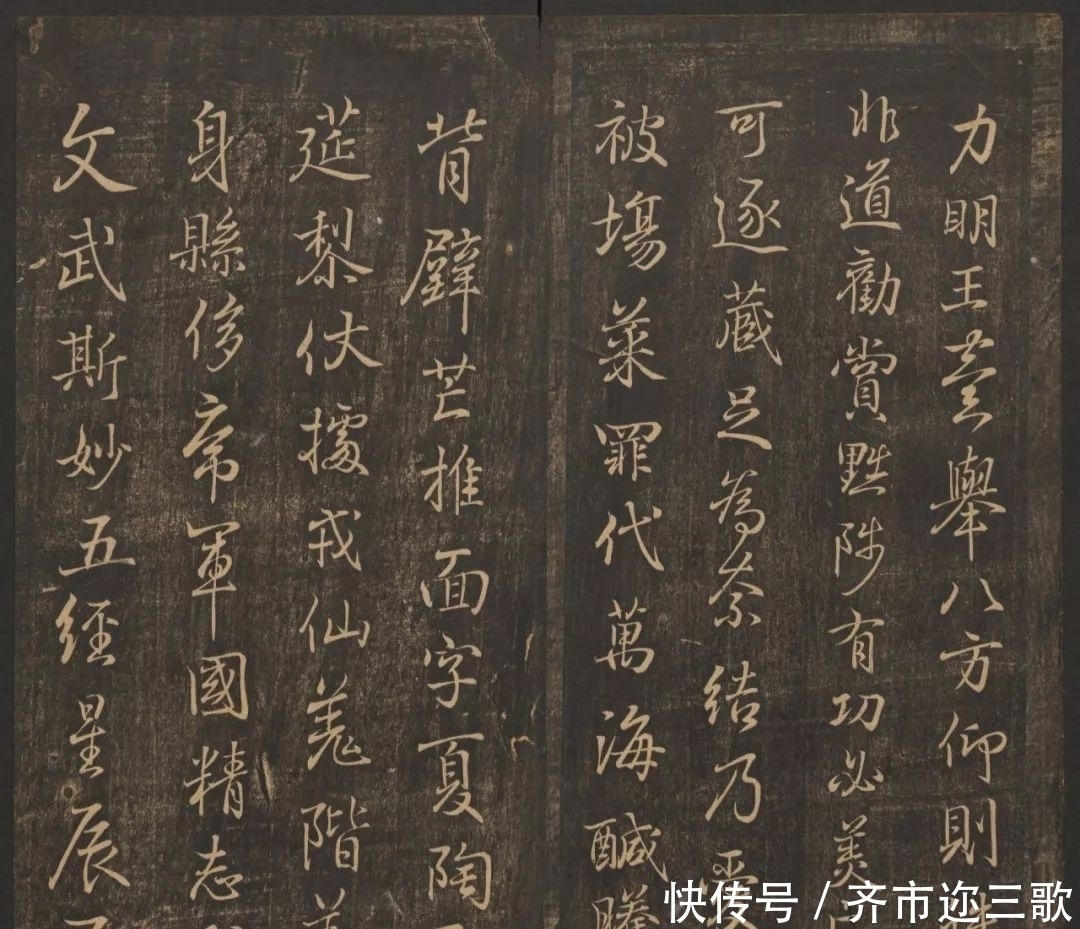 力明王臺舉八方仰則
非道勸賞黜陟有功必美
可逐藏足為奈結乃
被場菜罪代萬海鹹
背璧芒推面字夏陶
莚梨伏據戎仙羌階
身縣侈帝軍國精志
文武斯妙五經星辰
快传号/齐市迩三歌